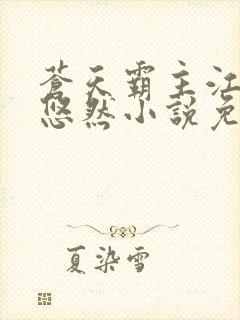 蒼天霸主江
悠然小說免
夏染雪